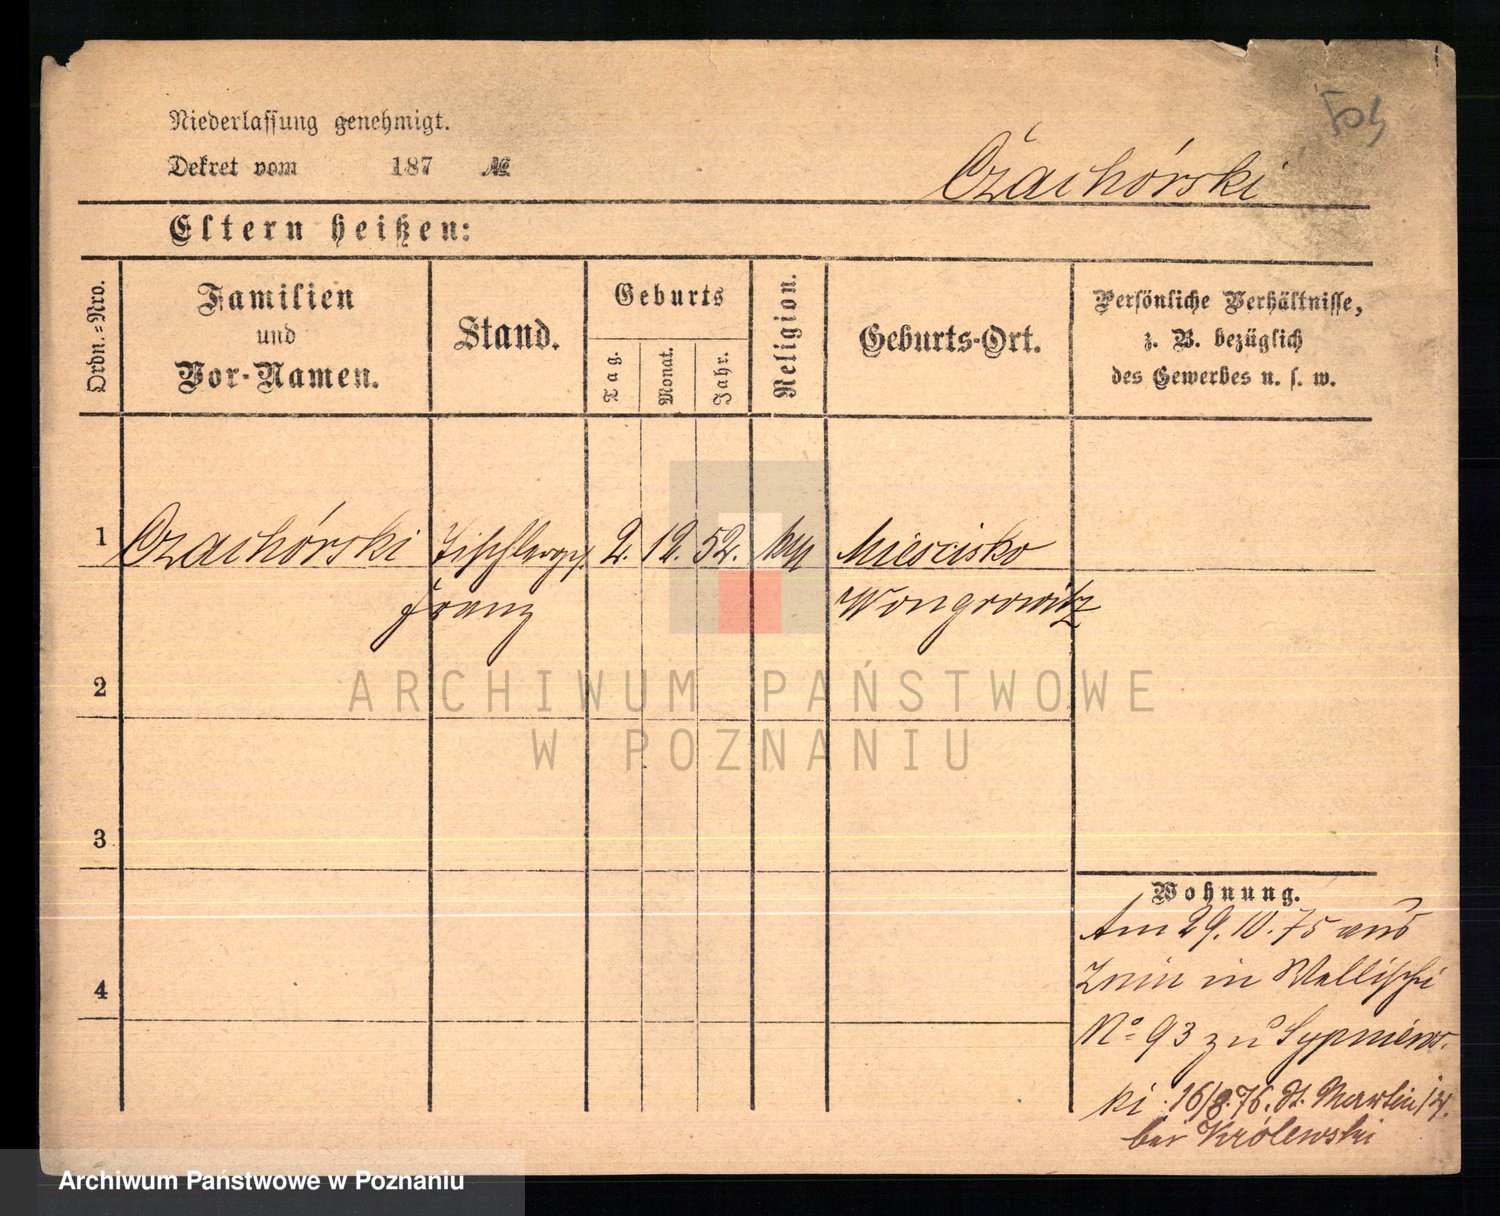 Niederlassung genehmigt.
Dekret vom 187 №
Czachórski
Eltern heißen:
Ordn.=Nro.
Familien
und
Vor-Namen.
Stand.
Geburts
Tag.
Monat.
Jahr.
Religion.
Geburts-Ort.
Persönliche Verhältnisse,
z. B. bezüglich
des Gewerbes u. s. w.
1 Czachórski 2. 12. 52. Miescisko
Franz Wongrowitz
2
3
4
Wohnung.
Am 29.10.75 aus
Znin in Wallischei
No 93 zu Sypniews-
ki. 16/8.76. St. Martin
bei Królewski
ARCHIWUM PAŃSTWOWE
W POZNANIU
Archiwum Państwowe w Poznaniu